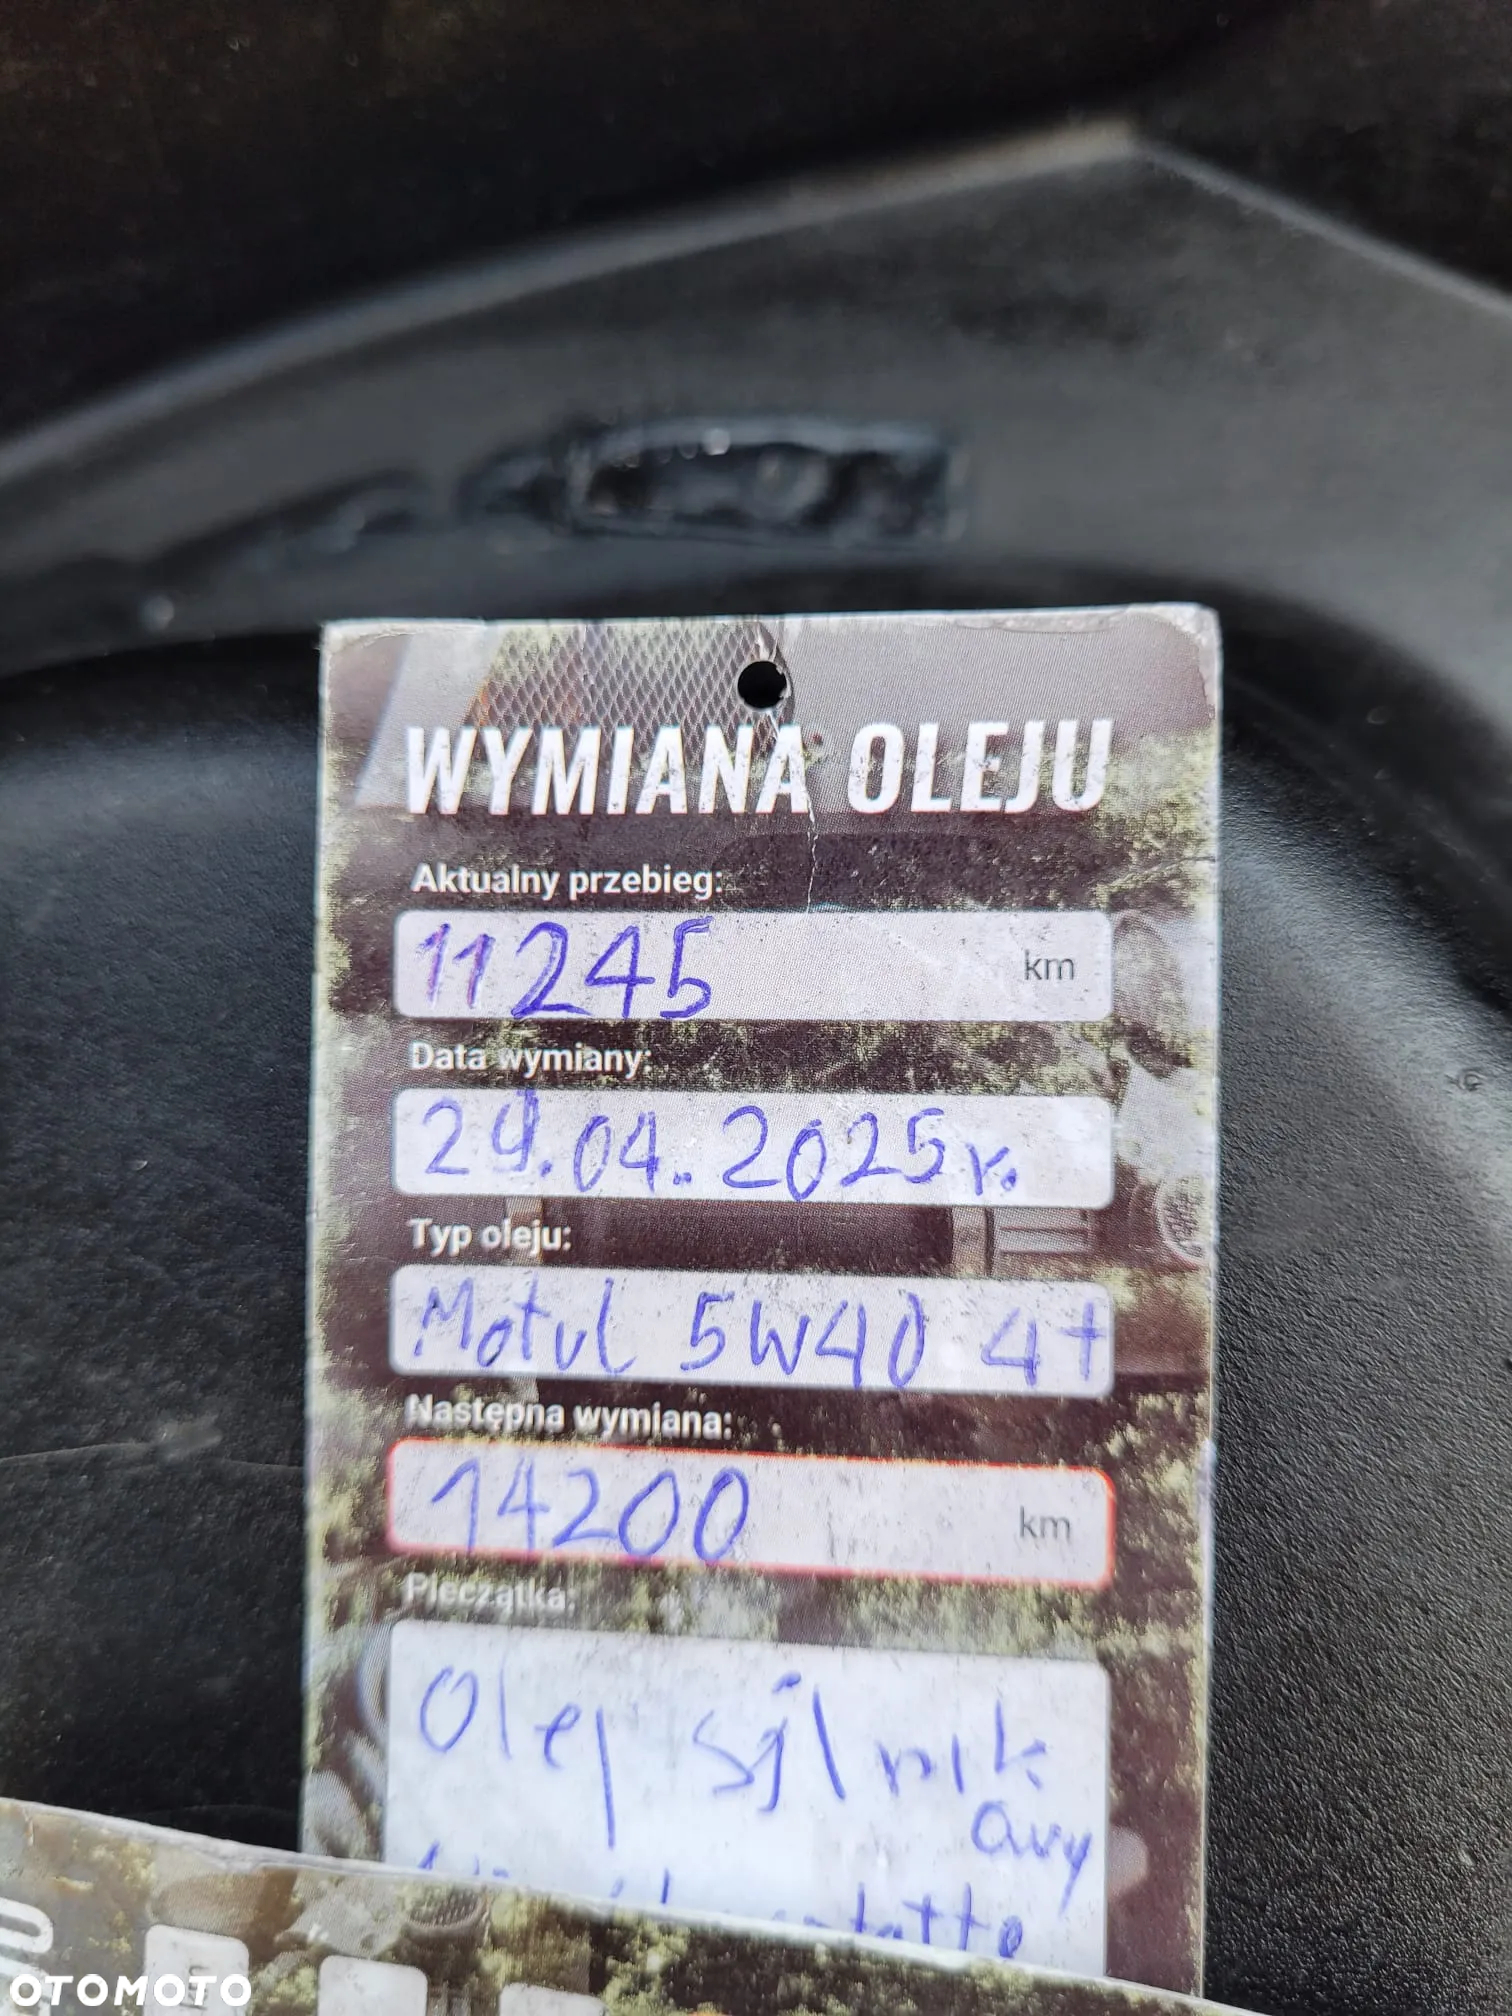 WYMIANA OLEJU
Aktualny przebieg:
11245 km
Data wymiany:
29.04.2025r.
Typ oleju:
Motul 5W40 4t
Następna wymiana:
14200 km
Pieczątka:
Olej silnik
owy
OTOMOTO